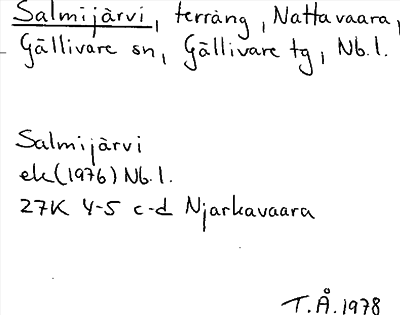 Salmijärvi, terräng, Nattavaara,
Gällivare sn, Gällivare tg, Nb.l.
Salmijärvi
ek(1976) Nb.l.
27K 4-5 c-d Njarkavaara
T.Å.1978